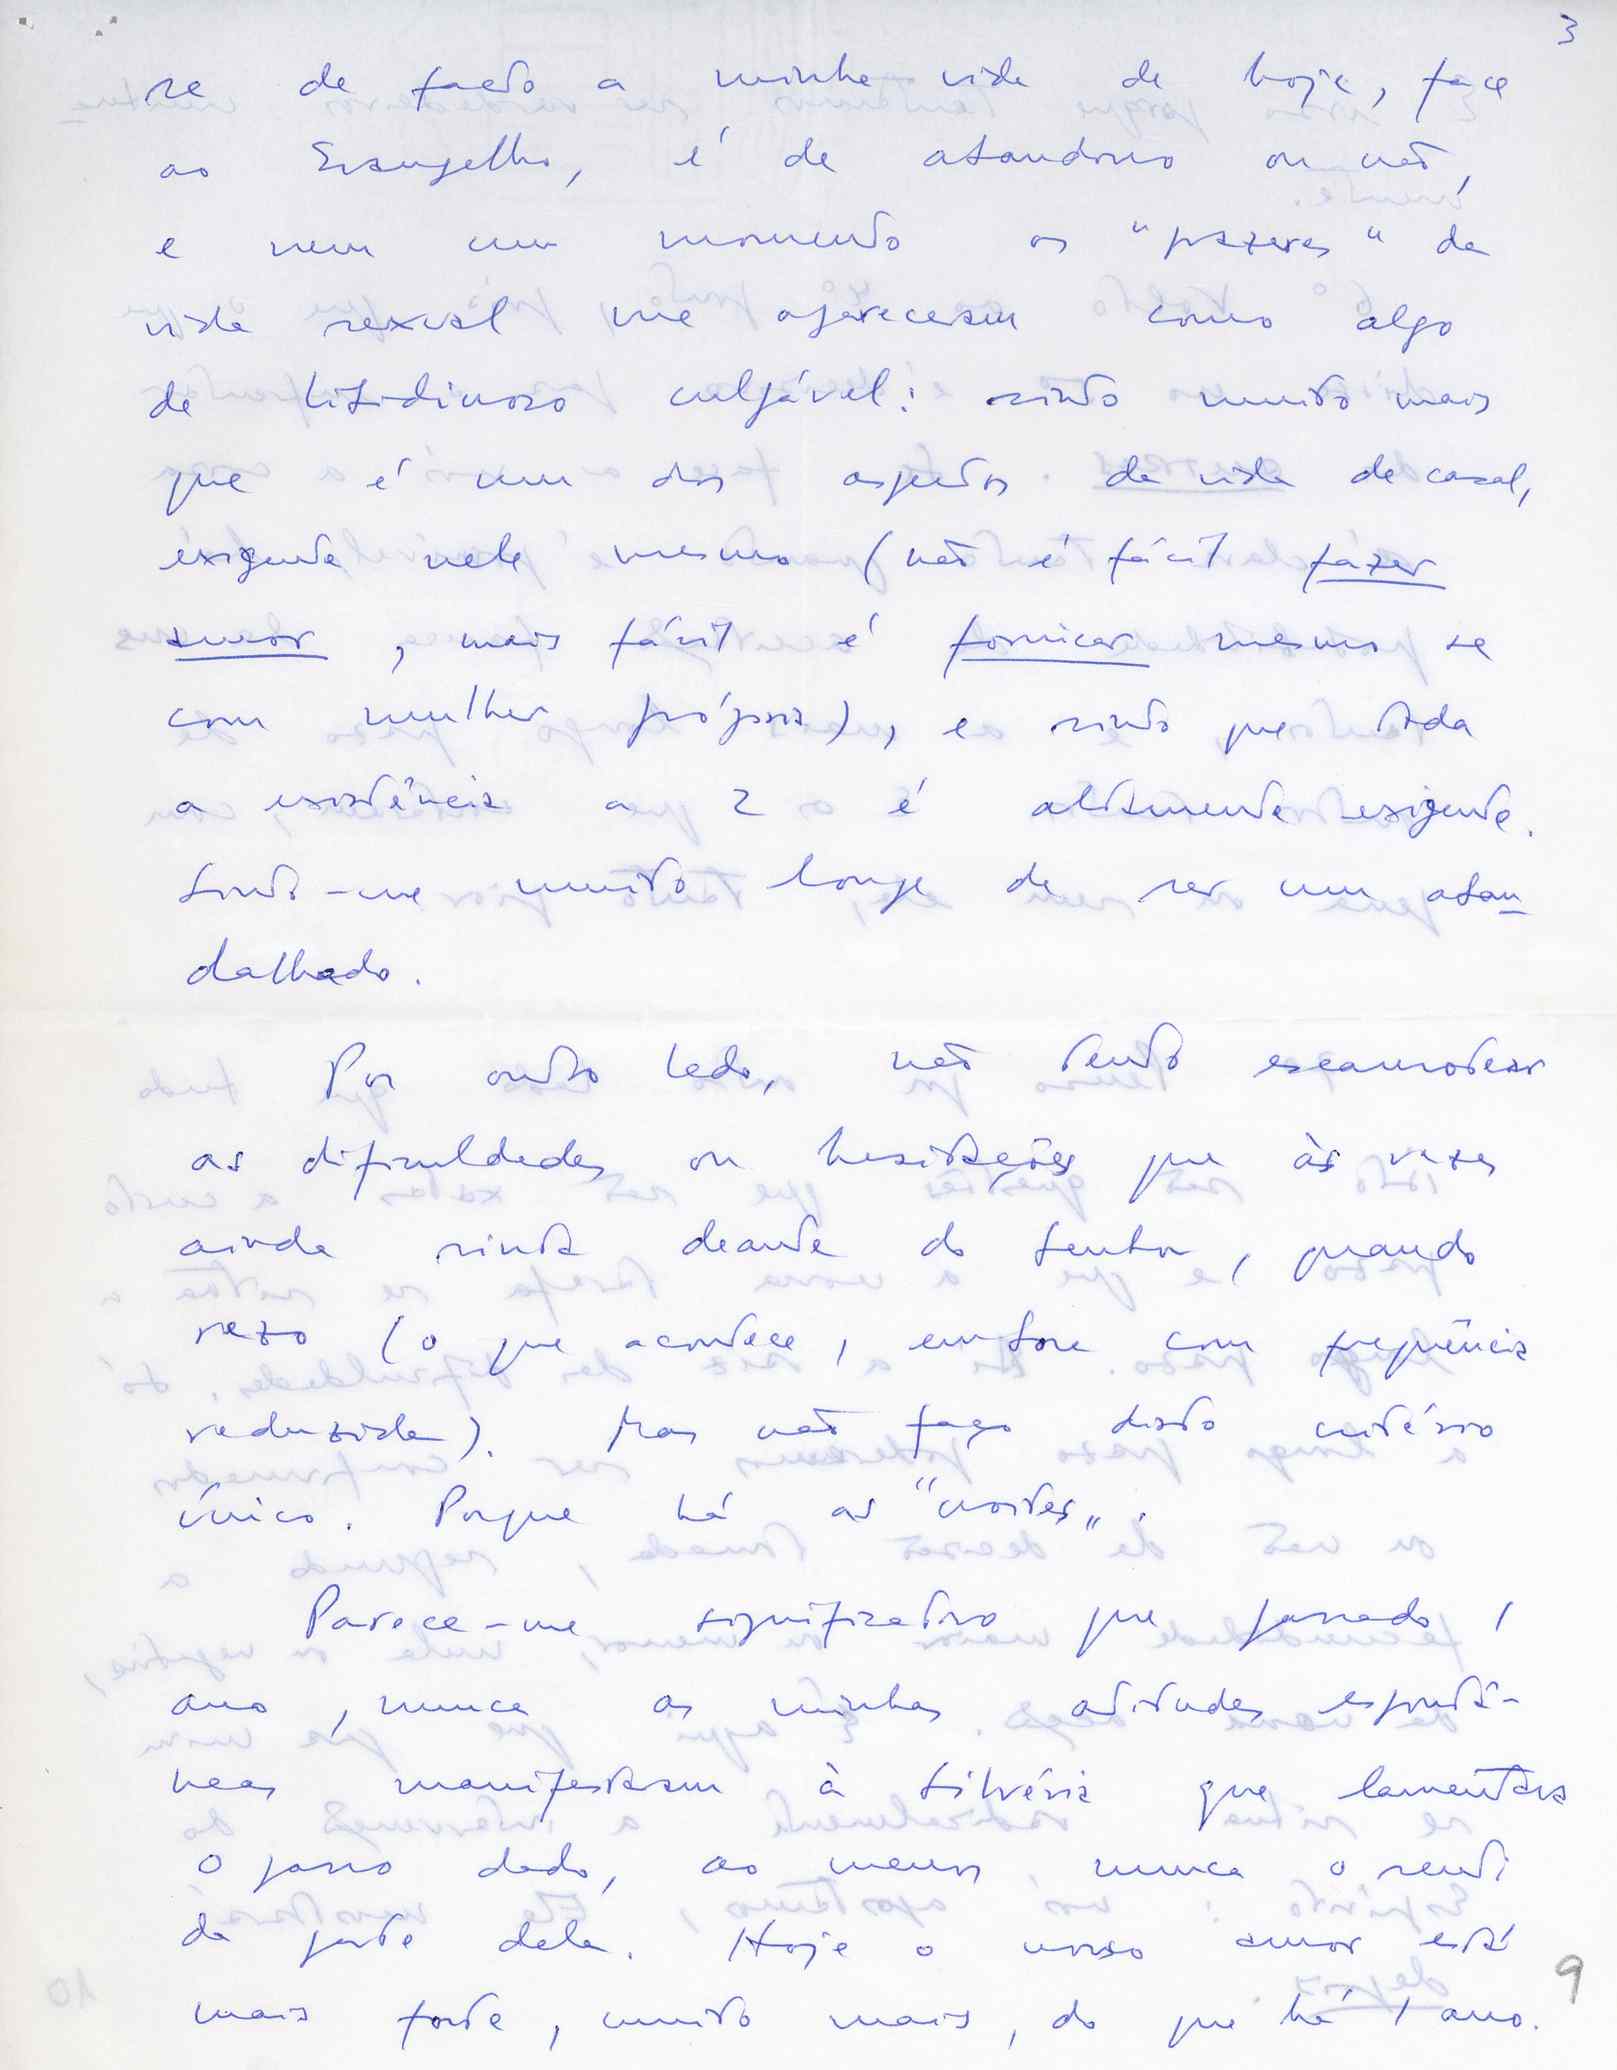 3
se de facto a minha vida de hoje, face
ao Evangelho, é de abandono ou não,
e nem um momento os "prazeres" da
vida sexual me apareceram como algo
de libidinoso culpável: sinto muito mais
que é um dos aspectos da vida de casal,
exigente nele mesmo (não é fácil fazer
amor, mais fácil é fornicar mesmo se
com mulher própria), e sinto que toda
a existência a 2 é altamente exigente.
Sinto-me muito longe de ser um aban
dalhado.
Por outro lado, não tento escamotear
as dificuldades ou hesitações que às vezes
ainda sinta deante do Senhor, quando
rezo (o que acontece, embora com frequência
reduzida). Mas não faço disto critério
único. Porque há as "noites".
Parece-me significativo que passado 1
ano, nunca as minhas atitudes espontâ-
neas manifestaram à Silvéria que lamentava
o passo dado, ao menos nunca o senti
da parte dela. Hoje o nosso amor está
mais forte, muito mais, do que há 1 ano.
9